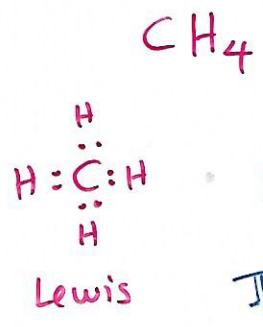 CH4
H
H : C : H
H
Lewis